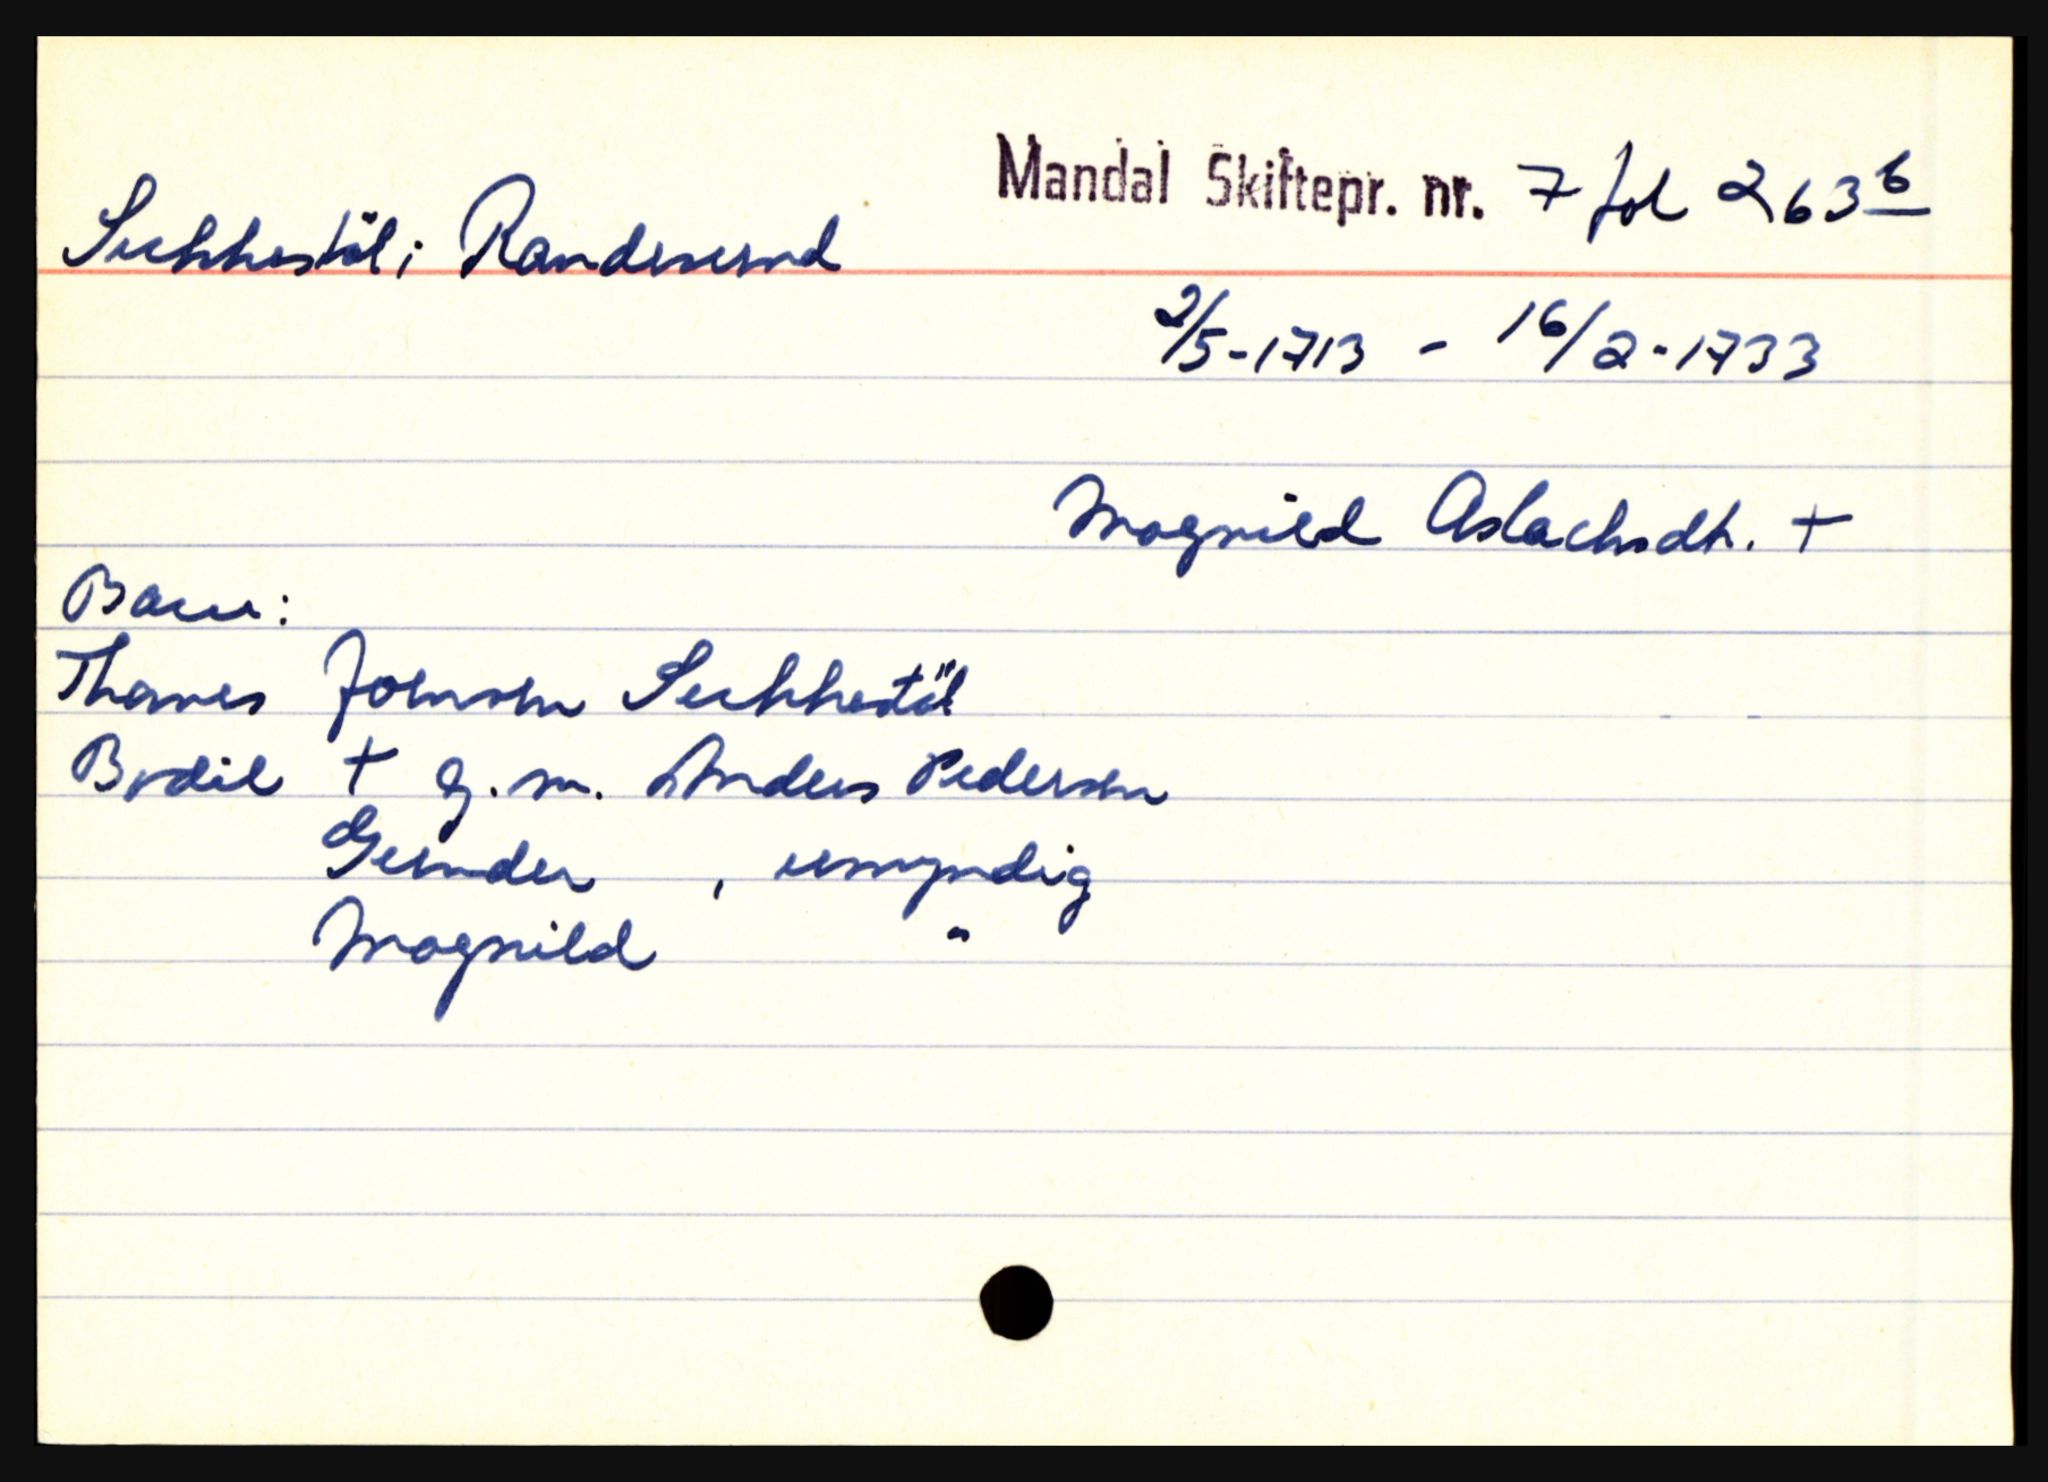 Mandal Skiftepr. nr. 7 fol 263 b
Suchhestöl i Randesund
2/5-1713 - 16/2-1733
Magnild Aslachsdtr. +
Barn:
Thomes Joensen Suchhestöl
Bodil + g. m. Anders Pedersen
Gunder , umyndig
Magnild "